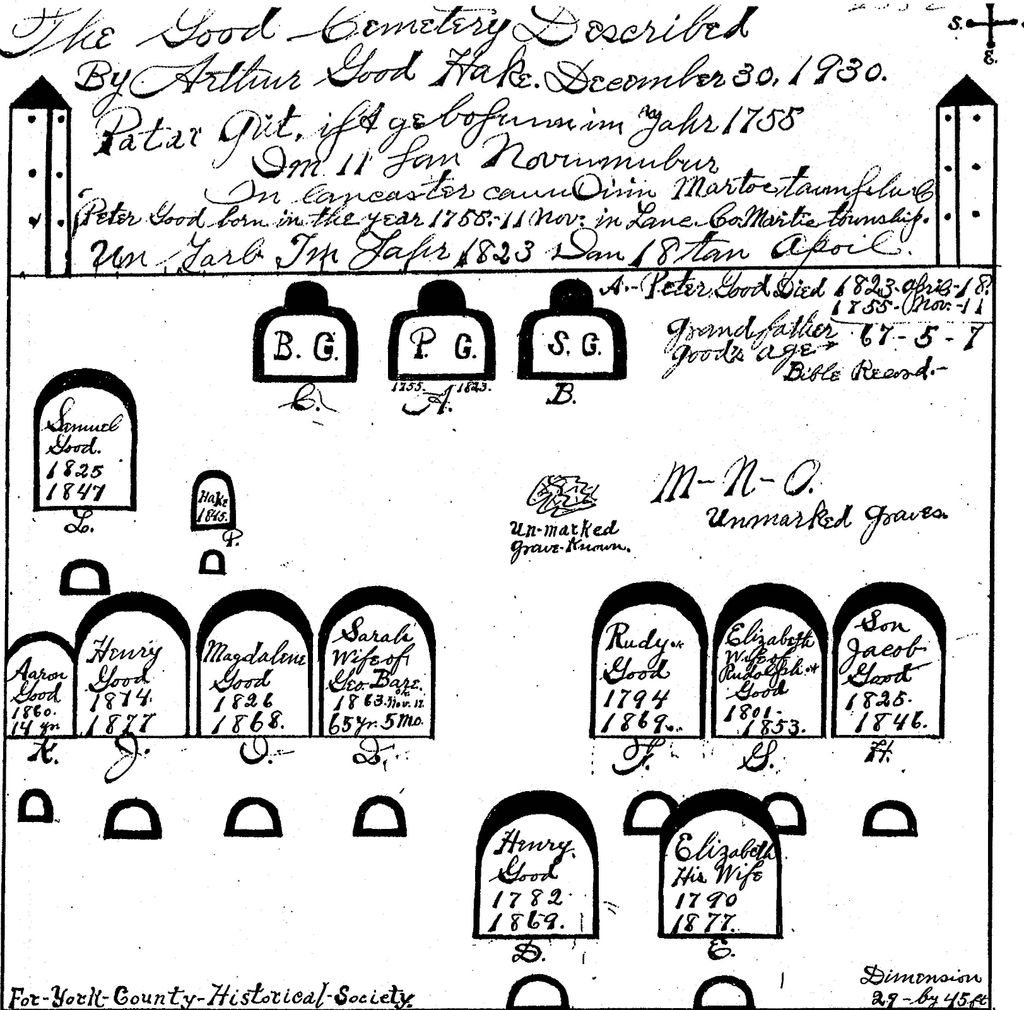 The Good Cemetery Described
S.
E.
By Arthur Good Hake. December 30, 1930.
Patar Gut, ist gebohrnn im Jahr 1755
Im 11 Novnmubur
In lancaster Martoc
Peter Good born in the year 1755-11 Nov. in Lanc. Co. Martic township.
Un Im Jahr 1823 Dan 18 tan April.
A.- Peter Good Died 1823-april-18.
1755-Nov.-11
Grandfather good's age 67-5-7
Bible Record.-
B. G.
P. G.
S. G.
1755. 1823.
C.
A.
B.
Samuel
Good.
1825
1847
L.
Hake
1845.
P.
Un-marked
grave-Known.
M-N-O.
Unmarked graves.
Aaron
Good
1860.
14 yr.
K.
Henry
Good
1874.
1877
J.
Magdalene
Good
1826
1868.
I.
Sarah
Wife of
Geo. Bare.
1863. Nov. 17.
65 yr. 5 Mo.
Rudy
Good
1794
1869.
F.
Elizabeth
Wife of
Rudolph
Good
1801-
1853.
G.
Son
Jacob
Good
1825.
1846.
H.
Henry
Good
1782
1869.
D.
Elizabeth
His Wife
1790
1877.
E.
For-York-County-Historical-Society.
Dimension
29-by 45 ft